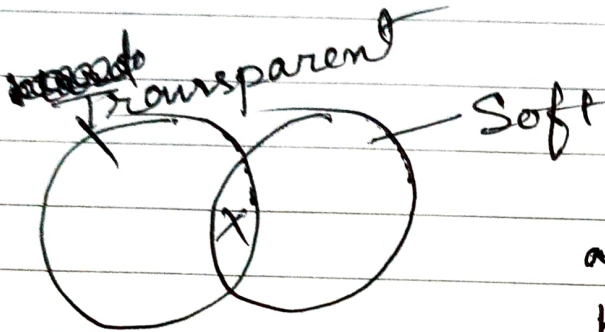 Transparent
Soft
X